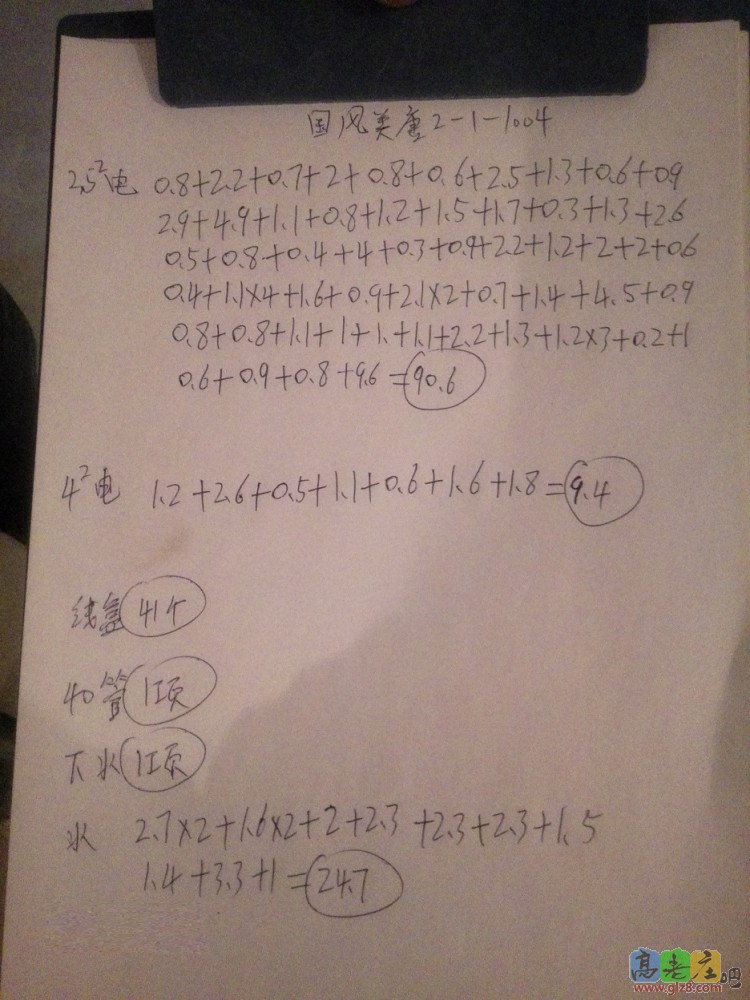 国风美唐2-1-1004
2.5²电 0.8+2.2+0.7+2+0.8+0.6+2.5+1.3+0.6+0.9
2.9+4.9+1.1+0.8+1.2+1.5+1.7+0.3+1.3+2.6
0.5+0.8+0.4+4+0.3+0.9+2.2+1.2+2+2+0.6
0.4+1.1×4+1.6+0.9+2.1×2+0.7+1.4+4.5+0.9
0.8+0.8+1.1+1+1.+1.1+2.2+1.3+1.2×3+0.2+1
0.6+0.9+0.8+9.6=90.6
4²电 1.2+2.6+0.5+1.1+0.6+1.6+1.8=9.4
线盒 41个
40管 1项
下水 1项
水 2.7×2+1.6×2+2+2.3+2.3+2.3+1.5
1.4+3.3+1=24.7
高老庄吧
www.glz8.com